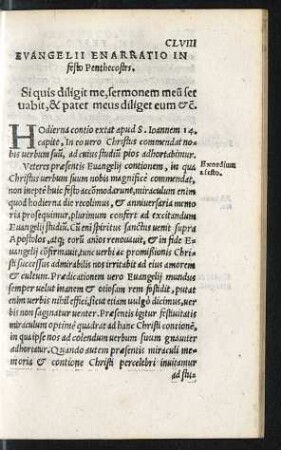 CLVIII
EVANGELII ENARRATIO IN
festo Penthecostes.
Si quis diligit me, sermonem meũ ser
uabit, & pater meus diliget eum &c̃.
HOdierna contio extat apud S. Ioannem 14.
capite, In eo uero Christus commendat no-
bis uerbum suũ, ad cuius studiũ pios adhortabimur.
Veteres præsentis Euangelij contionem, in qua
Exordium
a festo.
Christus uerbum suum nobis magnificè commendat,
non ineptè huic festo accõmodarunt, miraculum enim
quod hodierna die recolimus, & anniuersaria memo
ria prosequimur, plurimum confert ad excitandum
Euangelij studiũ. Cũ eni spiritus sanctus uenit supra
Apostolos, atq; corũ animos renouauit, & in fide E-
uangelij cõfirmauit, tunc uerbi ac promissionis Chri-
sti successus admirabilis nos irritabit ad eius amorem
& cultum. Prædicationem uero Euangelij mundus
semper uelut inanem & otiosam rem fastidit, put
ant uerbis nihil effici, sicut etiam uulgò dicimus, uer-
bis non saginatur uenter. Præsentis igitur festiuitatis
miraculum optimè quadrat ad hanc Christi contionẽ,
in qua ipse nos ad colendum uerbum suum gnauiter
adhortatur. Quando autem præsentis miraculi me-
moria & contione Christi percelebri inuitamur
ad stu-